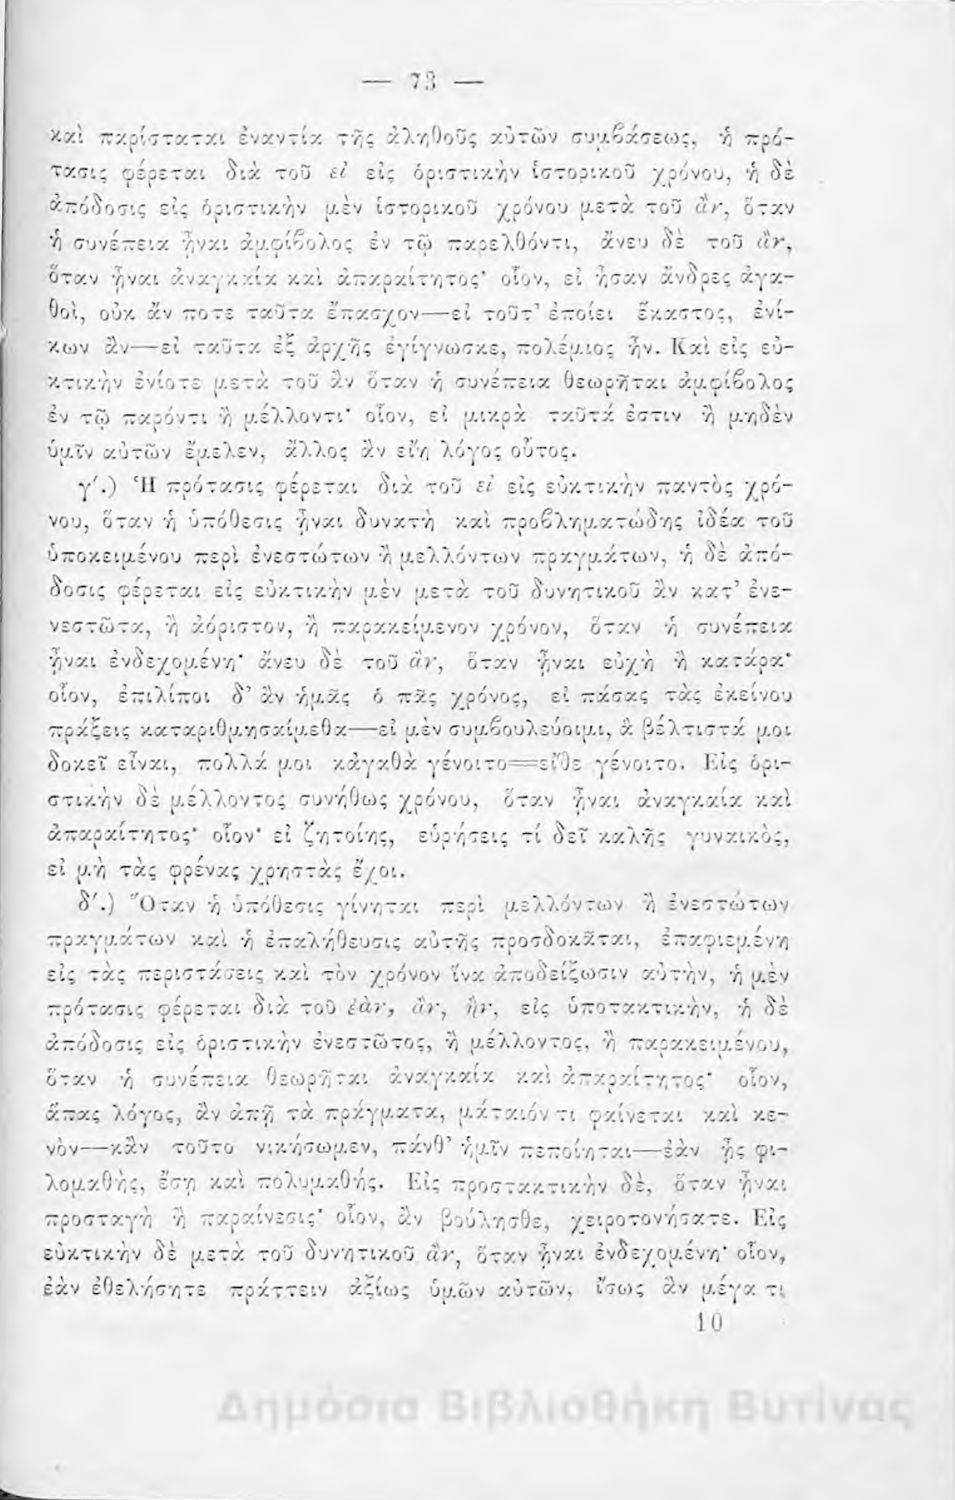 — 73 —
καὶ παρίσταται ἐναντία τῆς ἀληθοῦς αὐτῶν συμβάσεως, ἡ πρό-
τασις φέρεται διὰ τοῦ εἰ εἰς ὁριστικὴν ἱστορικοῦ χρόνου, ἡ δὲ
ἀπόδοσις εἰς ὁριστικὴν μὲν ἱστορικοῦ χρόνου μετὰ τοῦ ἂν, ὅταν
ἡ συνέπεια ᾖναι ἀμφίβολος ἐν τῷ παρελθόντι, ἄνευ δὲ τοῦ ἂν,
ὅταν ᾖναι ἀναγκαία καὶ ἀπαραίτητος· οἷον, εἰ ἦσαν ἄνδρες ἀγα-
θοὶ, οὐκ ἄν ποτε ταῦτα ἔπασχον—εἰ τοῦτ’ ἐποίει ἕκαστος, ἐνί-
κων ἂν—εἰ ταῦτα ἐξ ἀρχῆς ἐγίγνωσκε, πολέμιος ἦν. Καὶ εἰς εὐ-
κτικὴν ἐνίοτε μετὰ τοῦ ἂν ὅταν ἡ συνέπεια θεωρῆται ἀμφίβολος
ἐν τῷ παρόντι ἢ μέλλοντι· οἷον, εἰ μικρὰ ταῦτά ἐστιν ἢ μηδὲν
ὑμῖν αὐτῶν ἔμελεν, ἄλλος ἂν εἴη λόγος οὗτος.
γ΄.) Ἡ πρότασις φέρεται διὰ τοῦ εἰ εἰς εὐκτικὴν παντὸς χρό-
νου, ὅταν ἡ ὑπόθεσις ᾖναι δυνατὴ καὶ προβληματώδης ἰδέα τοῦ
ὑποκειμένου περὶ ἐνεστώτων ἢ μελλόντων πραγμάτων, ἡ δὲ ἀπό-
δοσις φέρεται εἰς εὐκτικὴν μὲν μετὰ τοῦ δυνητικοῦ ἂν κατ’ ἐνε-
νεστῶτα, ἢ ἀόριστον, ἢ παρακείμενον χρόνον, ὅταν ἡ συνέπεια
ᾖναι ἐνδεχομένη· ἄνευ δὲ τοῦ ἂν, ὅταν ᾖναι εὐχὴ ἢ κατάρα·
οἷον, ἐπιλίποι δ’ ἂν ἡμᾶς ὁ πᾶς χρόνος, εἰ πάσας τὰς ἐκείνου
πράξεις καταριθμησαίμεθα—εἰ μὲν συμβουλεύοιμι, ἃ βέλτιστά μοι
δοκεῖ εἶναι, πολλά μοι κἀγαθὰ γένοιτο=εἴθε γένοιτο. Εἰς ὁρι-
στικὴν δὲ μέλλοντος συνήθως χρόνου, ὅταν ᾖναι ἀναγκαία καὶ
ἀπαραίτητος· οἷον· εἰ ζητοίης, εὑρήσεις τί δεῖ καλῆς γυναικὸς,
εἰ μὴ τὰς φρένας χρηστὰς ἔχοι.
δ΄.) Ὅταν ἡ ὑπόθεσις γίνηται περὶ μελλόντων ἢ ἐνεστώτων
πραγμάτων καὶ ἡ ἐπαλήθευσις αὐτῆς προσδοκᾶται, ἐπαφιεμένη
εἰς τὰς περιστάσεις καὶ τὸν χρόνον ἵνα ἀποδείξωσιν αὐτὴν, ἡ μὲν
πρότασις φέρεται διὰ τοῦ ἐὰν, ἂν, ἢν, εἰς ὑποτακτικὴν, ἡ δὲ
ἀπόδοσις εἰς ὁριστικὴν ἐνεστῶτος, ἢ μέλλοντος, ἢ παρακειμένου,
ὅταν ἡ συνέπεια θεωρῆται ἀναγκαία καὶ ἀπαραίτητος· οἷον,
ἅπας λόγος, ἂν ἀπῇ τὰ πράγματα, μάταιόν τι φαίνεται καὶ κε-
νὸν—κἂν τοῦτο νικήσωμεν, πάνθ’ ἡμῖν πεποίηται—ἐὰν ᾖς φι-
λομαθὴς, ἔσῃ καὶ πολυμαθής. Εἰς προστακτικὴν δὲ, ὅταν ᾖναι
προσταγὴ ἢ παραίνεσις· οἷον, ἂν βούλησθε, χειροτονήσατε. Εἰς
εὐκτικὴν δὲ μετὰ τοῦ δυνητικοῦ ἂν, ὅταν ᾖναι ἐνδεχομένη· οἷον,
ἐὰν ἐθελήσητε πράττειν ἀξίως ὑμῶν αὐτῶν, ἴσως ἂν μέγα τι
10
Δημόσια Βιβλιοθήκη Βυτίνας